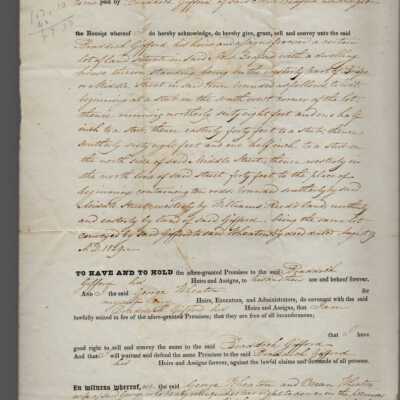 to me paid by Braddock Gifford of said
the Receipt whereof I do hereby acknowledge, do hereby give, grant, sell and convey unto the said
Braddock Gifford, his heirs and assigns forever a certain
lot of land situate in said New Bedford with a dwelling
house thereon standing being in the easterly part of
or Middle Street in said town bounded as follows to wit
beginning at a stub on the south west corner of the lot,
thence running northerly sixty eight feet and one half
inch to a stub, thence easterly forty feet to a stub; thence
southerly sixty eight feet and one half inch to a stub on
the north side of said Middle Street; thence westerly in
the north line of said street forty feet to the place of
beginning containing ten rods bounded southerly by said
Middle Street westerly by Williams land northerly
and easterly by land of said Gifford being the same lot
conveyed by said Gifford to said Wheaton by deed dated
A.D. 1829.
TO HAVE AND TO HOLD the afore-granted Premises to the said Braddock
Gifford, his Heirs and Assigns, to use and behoof forever.
And I the said George Wheaton for
myself and my Heirs, Executors, and Administrators, do covenant with the said
Braddock Gifford, his Heirs and Assigns, that I am
lawfully seized in fee of the afore-granted Premises; that they are free of all incumbrances;
that I have
good right to sell and convey the same to the said Braddock Gifford
And that I will warrant and defend the same Premises to the said Braddock Gifford
his Heirs and Assigns forever, against the lawful claims and demands of all persons.
In witness whereof, we the said George Wheaton and Wheaton
wife of said George who hereby relinquishes her right to dower in the premises